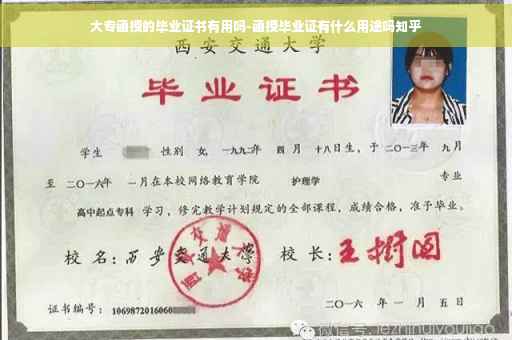 大专函授的毕业证书有用吗-函授毕业证有什么用途吗知乎
西安交通大学
毕业证书
学生 性别 女, 一九九二年 四月 十八日生, 于 二〇一三年 九月
至 二〇一六年 一月在本校网络教育学院 护理学 专业
高中起点专科 学习, 修完教学计划规定的全部课程, 成绩合格, 准予毕业。
校名: 西安交通大学 校长: 王树国
西安交通大学
证书编号: 1069872016060
二〇一六年 一月 五日
微信号: jiezhihuiyoujiao